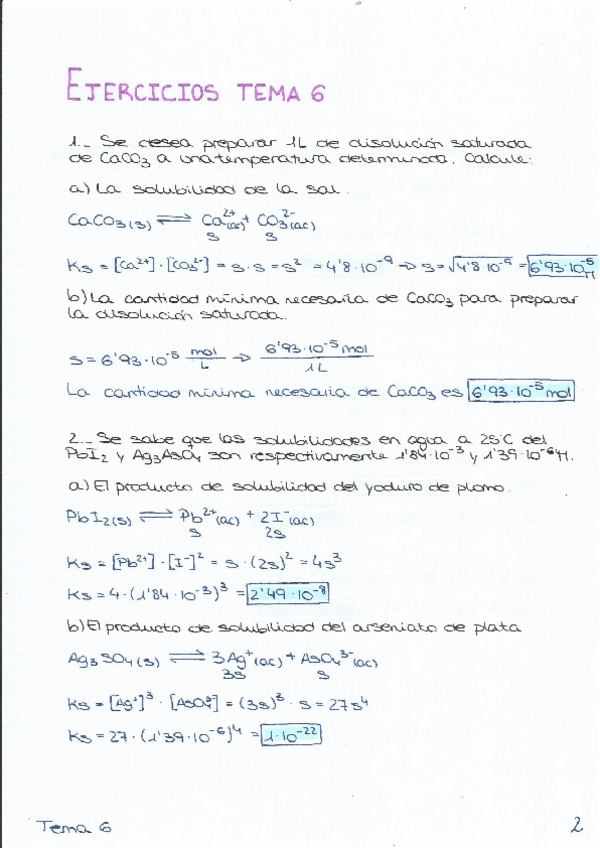 EJERCICIOS TEMA 6
1._ Se desea preparar 1L de disolución saturada
de CaCO₃ a una temperatura determinada. Calcule:
a) La solubilidad de la sal.
CaCO₃(s) ⇌ Ca²⁺(ac) + CO₃²⁻(ac)
s s
Ks = [Ca²⁺]·[CO₃²⁻] = s·s = s² = 4'8·10⁻⁹ → s = √4'8·10⁻⁹ = 6'93·10⁻⁵ M
b) La cantidad mínima necesaria de CaCO₃ para preparar
la disolución saturada.
s = 6'93·10⁻⁵ mol/L → 6'93·10⁻⁵ mol / 1L
La cantidad mínima necesaria de CaCO₃ es 6'93·10⁻⁵ mol
2._ Se sabe que las solubilidades en agua a 25°C del
PbI₂ y Ag₃AsO₄ son respectivamente 1'84·10⁻³ y 1'39·10⁻⁶ M.
a) El producto de solubilidad del yoduro de plomo.
PbI₂(s) ⇌ Pb²⁺(ac) + 2I⁻(ac)
s 2s
Ks = [Pb²⁺]·[I⁻]² = s·(2s)² = 4s³
Ks = 4·(1'84·10⁻³)³ = 2'49·10⁻⁸
b) El producto de solubilidad del arseniato de plata
Ag₃SO₄(s) ⇌ 3Ag⁺(ac) + AsO₄³⁻(ac)
3s s
Ks = [Ag⁺]³·[AsO₄³⁻] = (3s)³·s = 27s⁴
Ks = 27·(1'39·10⁻⁶)⁴ = 1·10⁻²²
Tema 6 2